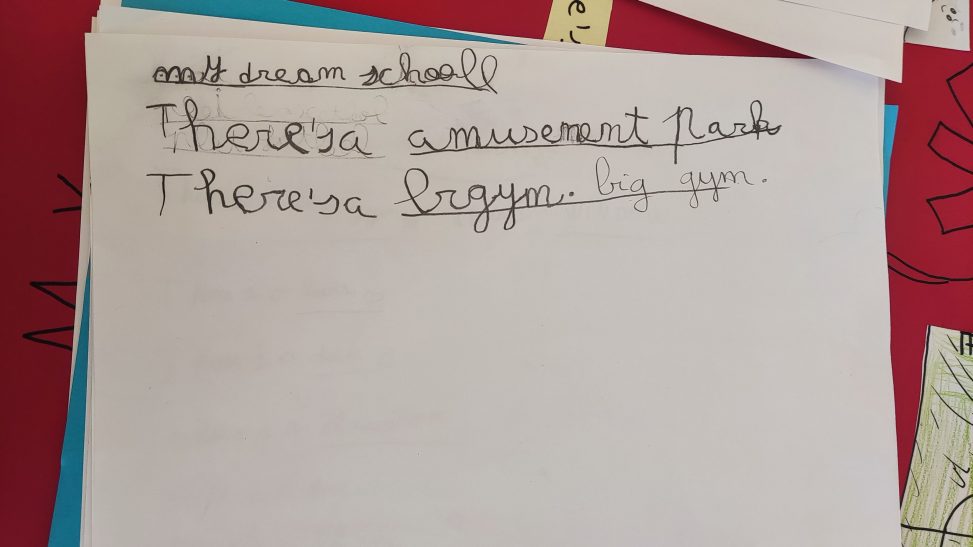 my dream schooll
There's a amusement park
There's a brgym. big gym.